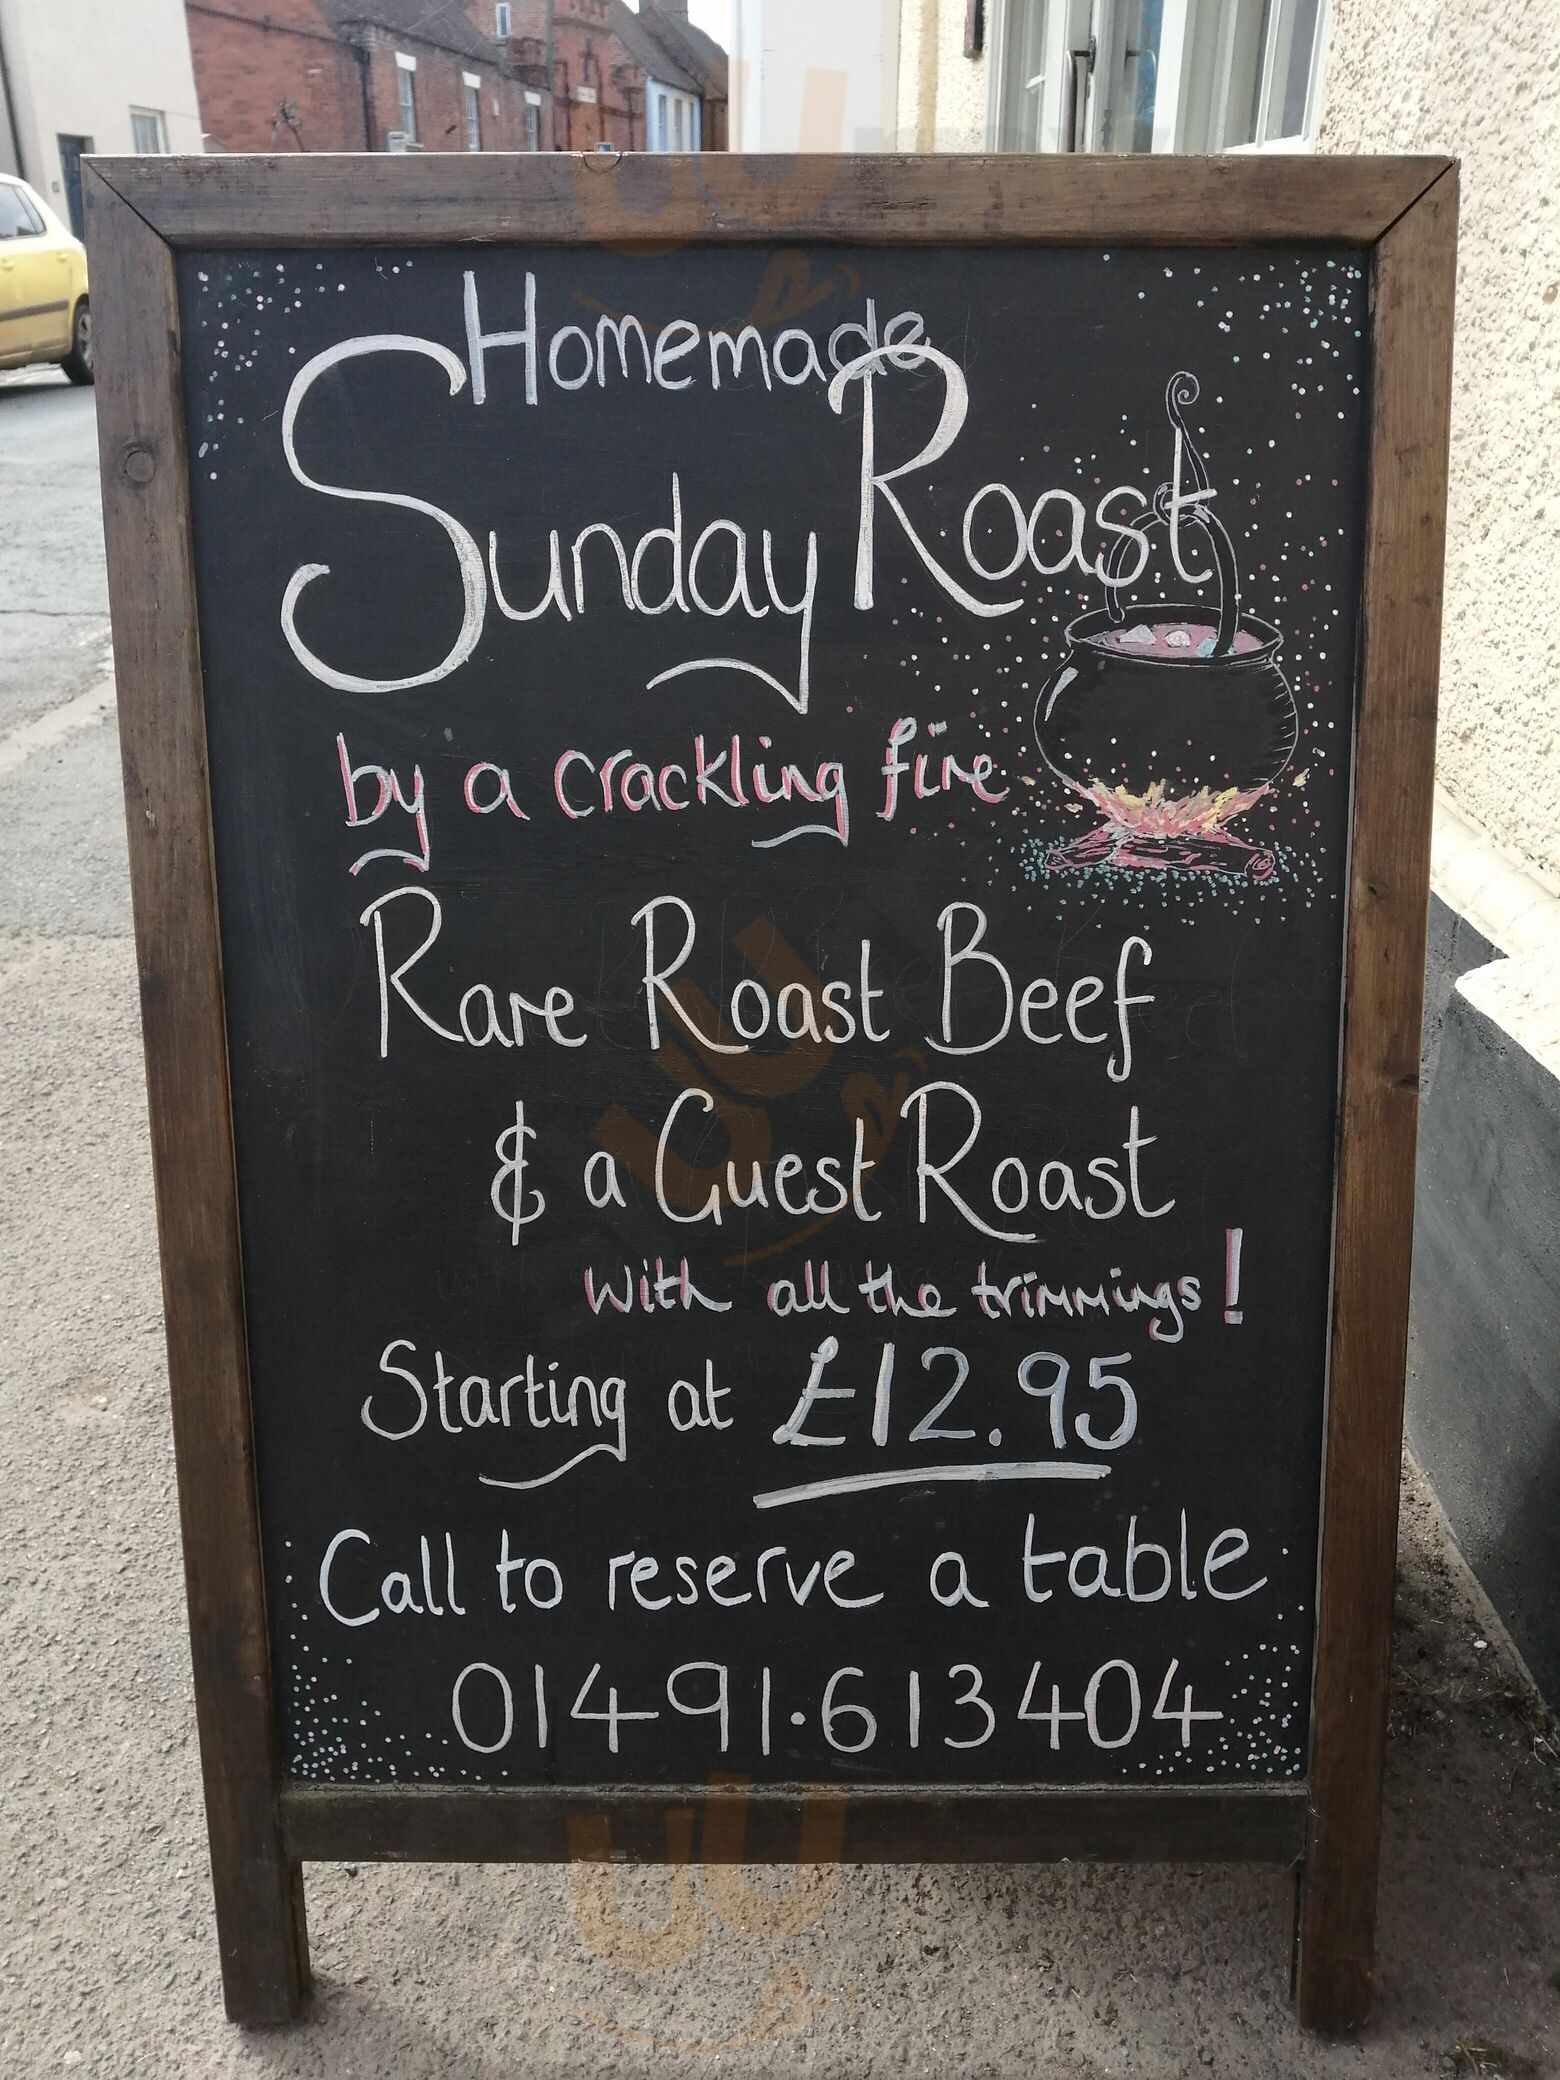 Homemade
Sunday Roast
by a crackling fire
Rare Roast Beef
& a Guest Roast
with all the trimmings!
Starting at £12.95
Call to reserve a table
01491.613404